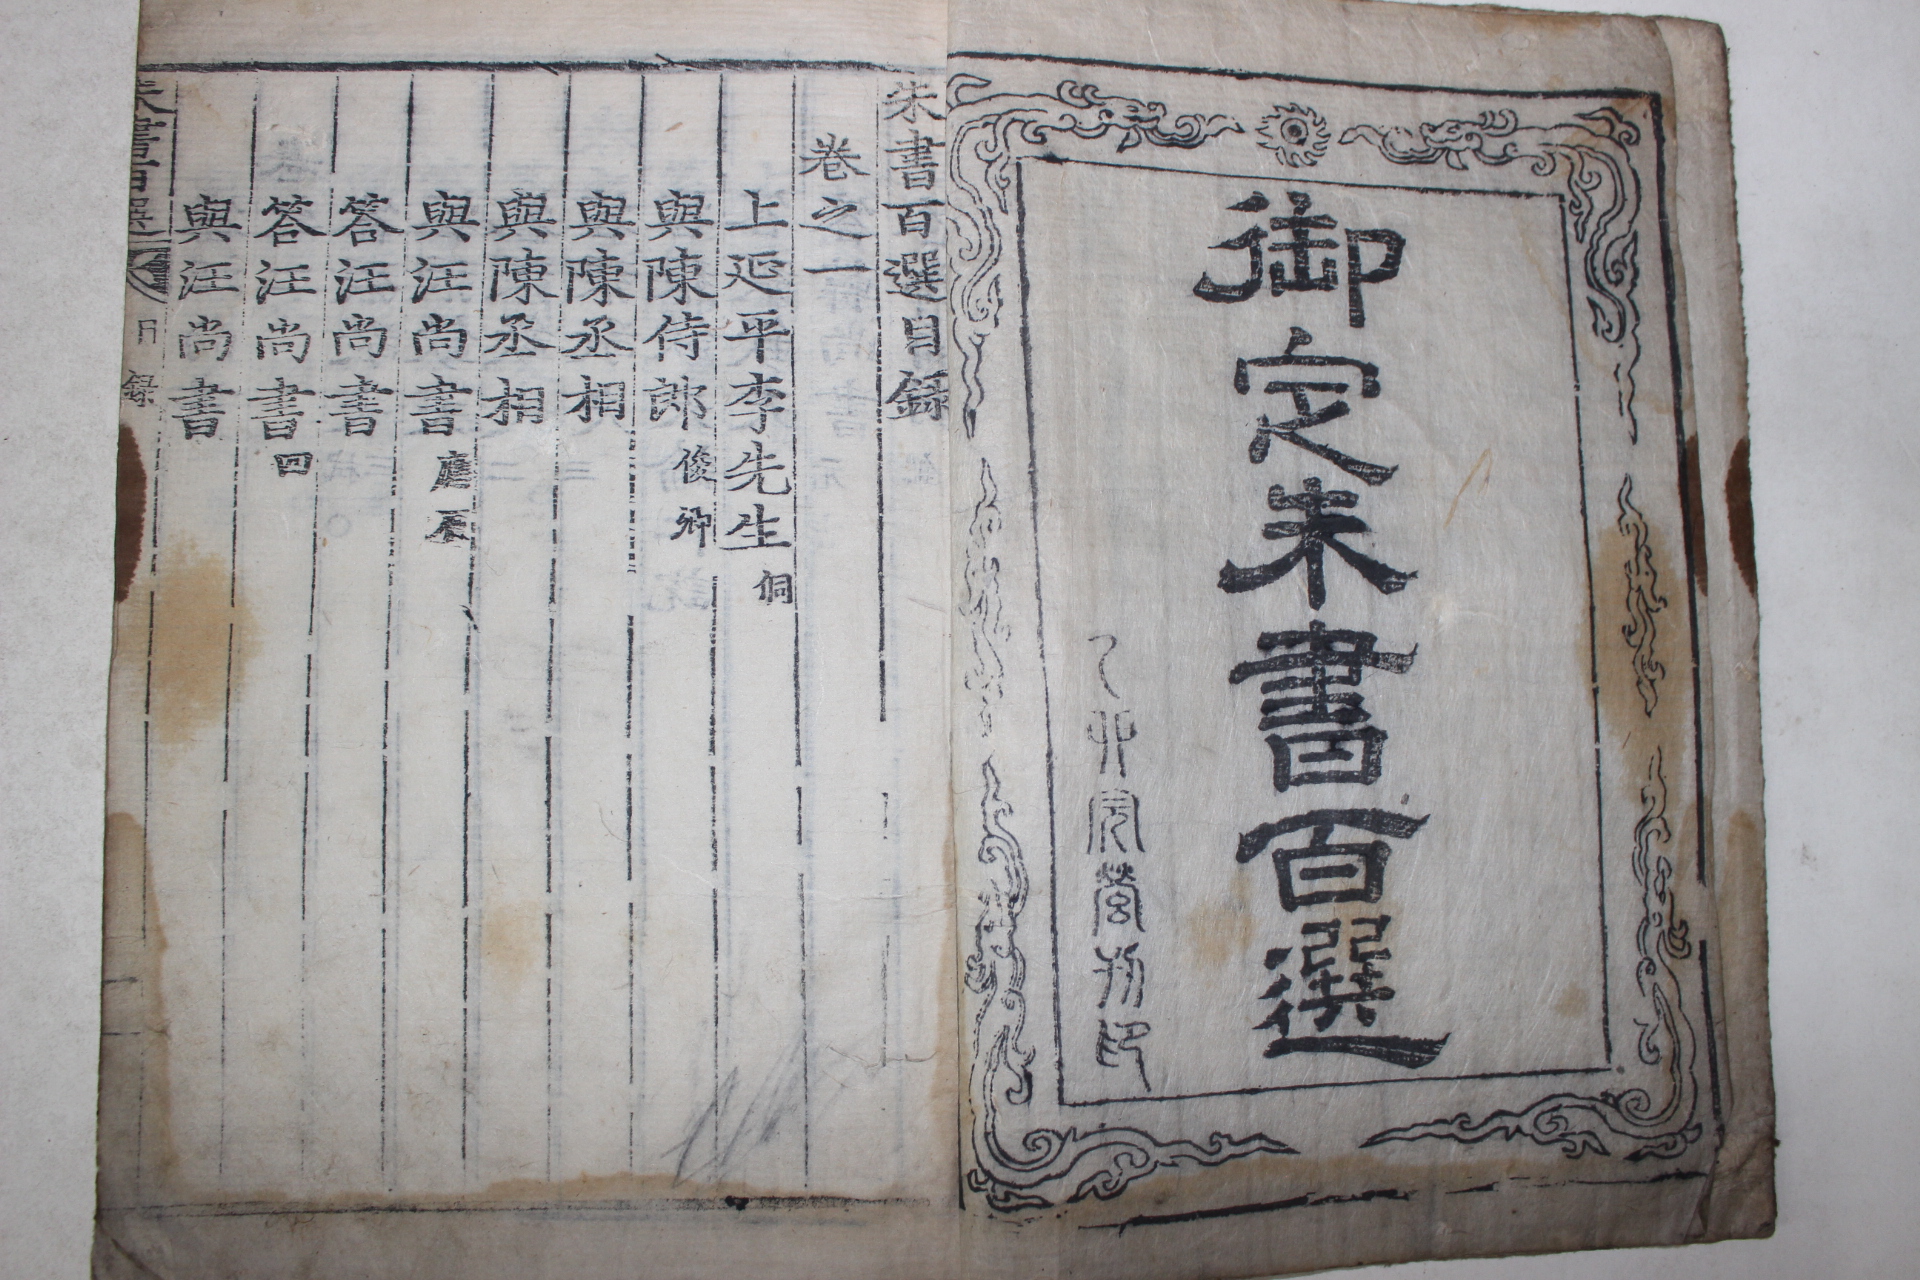 御定朱書百選
乙卯完營刊印
朱書百選目錄
卷之一
上延平李先生 侗
與陳侍郎 俊卿
與陳丞相
與陳丞相
與汪尚書 應辰
答汪尚書
答汪尚書 四
與汪尚書
朱書百選 目錄